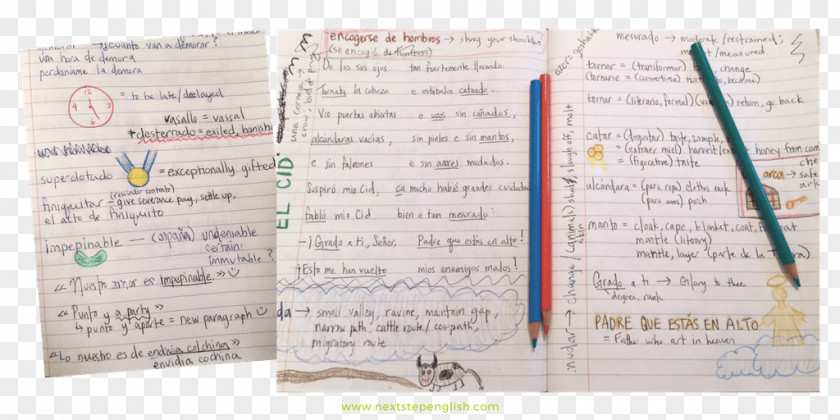 → ¿Cuánto van a demorar?
una hora de demora
perdóname la demora
12
3
6
9
= to be late/delayed
vasallo = vassal
desterrado = exiled, banished
superdotado
= exceptionally gifted
finiquitar → give severance pay, settle up,
el acto de finiquito
impepinable — (España) undeniable
certain
immutable?
« Nuestro amor es impepinable »
« Punto y a party »
↳ punto y aparte = new paragraph
« Lo nuestro es de endivia colchina »
envidia cochina
encogerse de hombros → shrug your shoulders
(se encogió de hombros)
EL CID
De los sus ojos tan fuertemente llorando.
Tornaba la cabeza e estábalos catando.
Vio puertas abiertas e uzos sin cañados,
alcándaras vacías, sin pieles e sin mantos,
e sin falcones e sin azores mudados.
Suspiró mio Cid, ca mucho habié grandes cuidados
fabló mio Cid bien e tan mesurado:
—¡Grado a ti, Señor, Padre que estás en alto!
¡Esto me han vuelto mios enemigos malos!
da → small valley, ravine, mountain gap,
narrow path, cattle route/cowpath,
migratory route
mudar → change / (animals) shed, slough off, molt
skin
mesurado → moderate/restrained;
/measured
tornar = (transformar) change
(tornarse = (convertirse) turn, become)
tornar = (literario, formal) (volver) return, go back
catar = (degustar) taste, sample,
= (extraer miel) harvest/extract honey from comb
= (figurative) taste
alcándara = (para ropa) clothes rack
(para aves) perch
arca → safe
manto = cloak, cape, blanket, coat, overcoat
mantle (literary)
mantle, layer (parte de la Tierra)
Grado a ti → Glory to thee
degree, rank
PADRE QUE ESTÁS EN ALTO
= Father who art in heaven
www.nextstepenglish.com